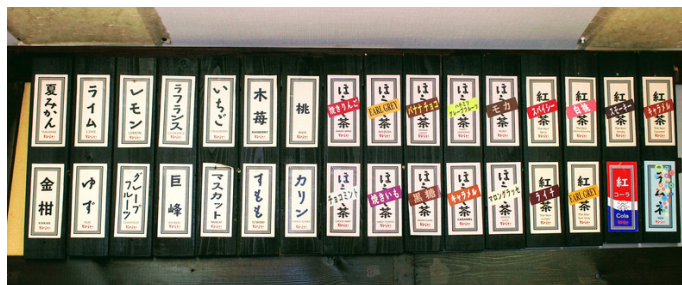 夏みかん
ライム
レモン
ラフランス
いちご
木苺
桃
ほうじ茶
焼きりんご
ほうじ茶
EARL GREY
ほうじ茶
バナナチョコ
ほうじ茶
グレープフルーツ
ほうじ茶
モカ
紅茶
スパイシー
紅茶
白桃
紅茶
スモーキー
紅茶
キャラメル
金柑
ゆず
グレープフルーツ
巨峰
マスカット
すもも
カリン
ほうじ茶
チョコミント
ほうじ茶
焼きいも
ほうじ茶
黒糖
ほうじ茶
キャラメル
ほうじ茶
マロングラッセ
紅茶
ライチ
紅茶
EARL GREY
紅茶
コーラ
Cola
ラムネ